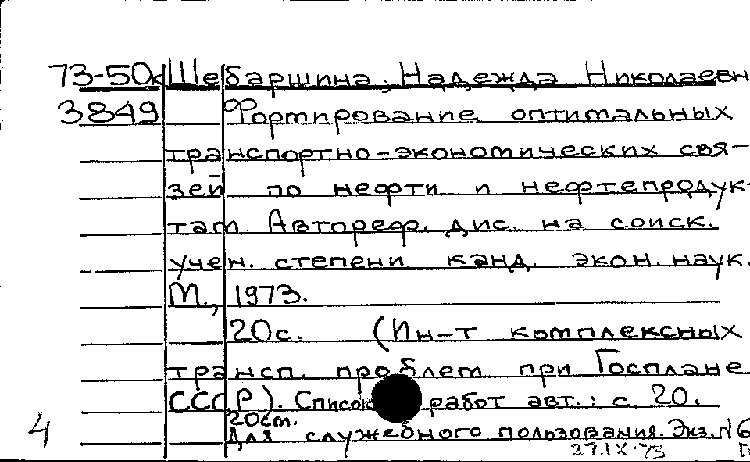 73-50к Шебаршина, Надежда Николаевн
3849 Формирование оптимальных
транспортно-экономических свя-
зей по нефти и нефтепродук-
там Автореф. дис. на соиск.
учен. степени канд. экон. наук.
М., 1973.
20с. (Ин-т комплексных
трансп. проблем при Госплане
СССР). Список работ авт.: с. 20.
20см.
4 Для служебного пользования. Экз. №6
27.IX.73